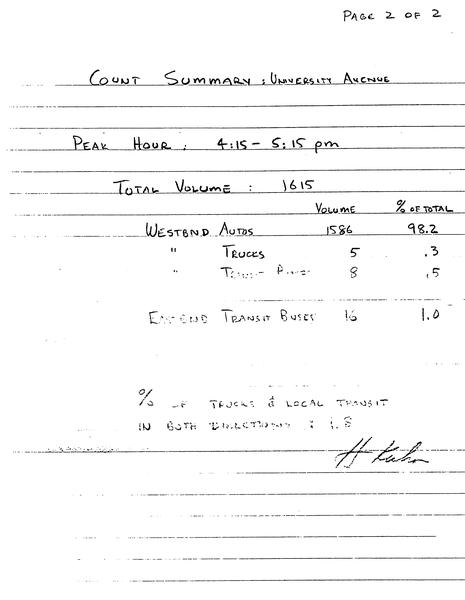 PAGE 2 OF 2
COUNT SUMMARY : UNIVERSITY AVENUE
PEAK HOUR : 4:15 - 5:15 pm
TOTAL VOLUME : 1615
VOLUME % OF TOTAL
WESTBND AUTOS 1586 98.2
" TRUCKS 5 .3
" 8 .5
TRANSIT BUSES 16 1.0
% OF TRUCKS & LOCAL TRANSIT
IN BOTH DIRECTIONS : 1.8
H Kuhn